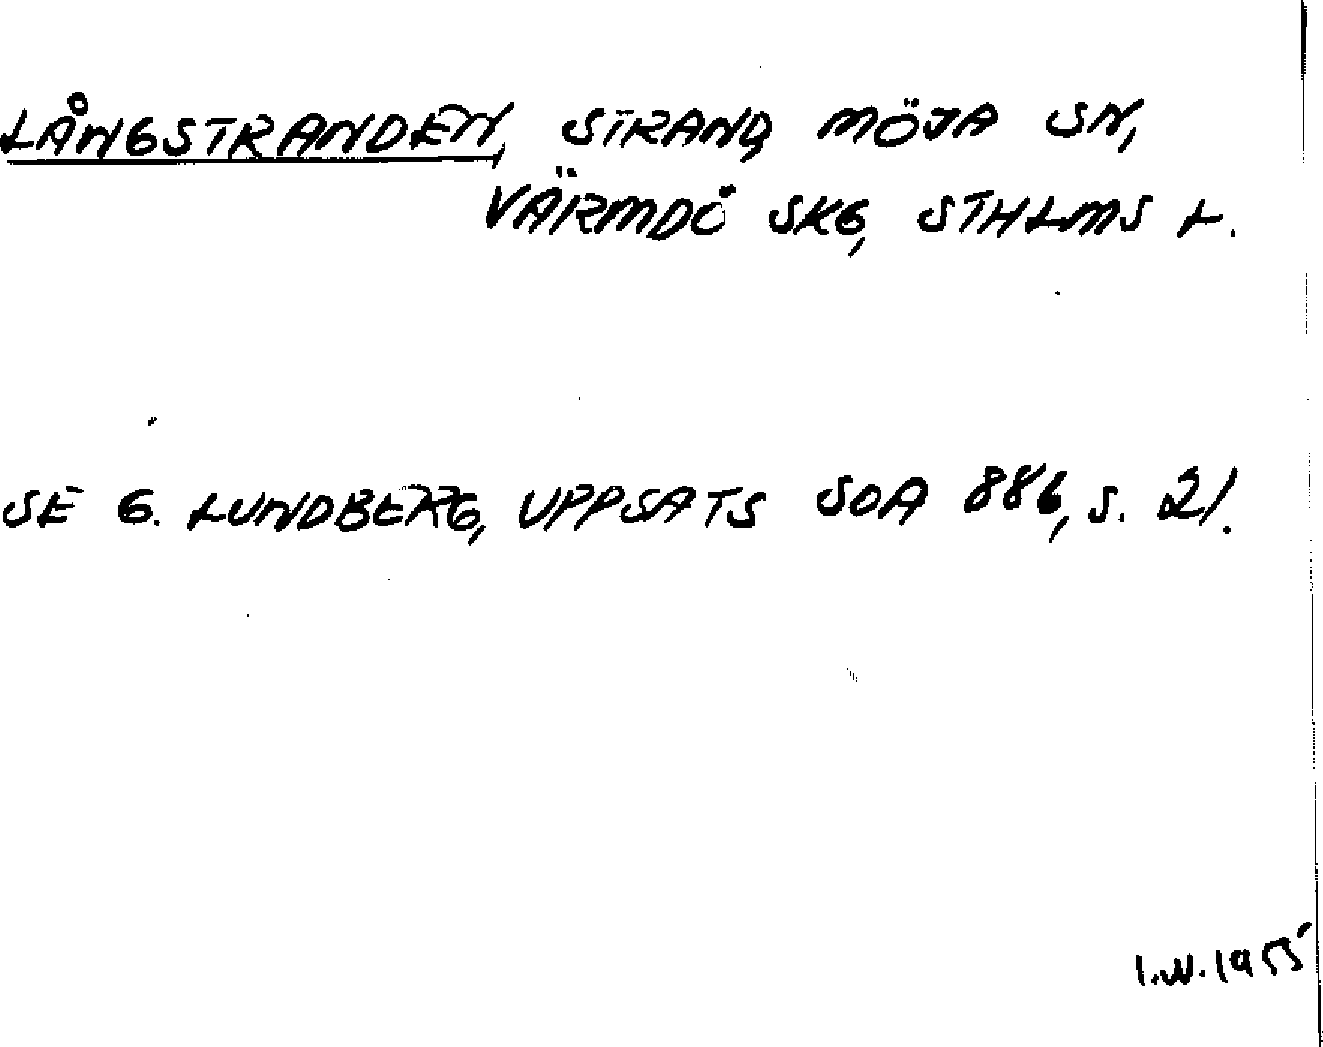 LÅNGSTRANDEN, STRAND, MÖJA SN,
VÄRMDÖ SKG, STHLMS L.
SE G. LUNDBERG, UPPSATS SOA 886, S. 21.
I.W. 1955